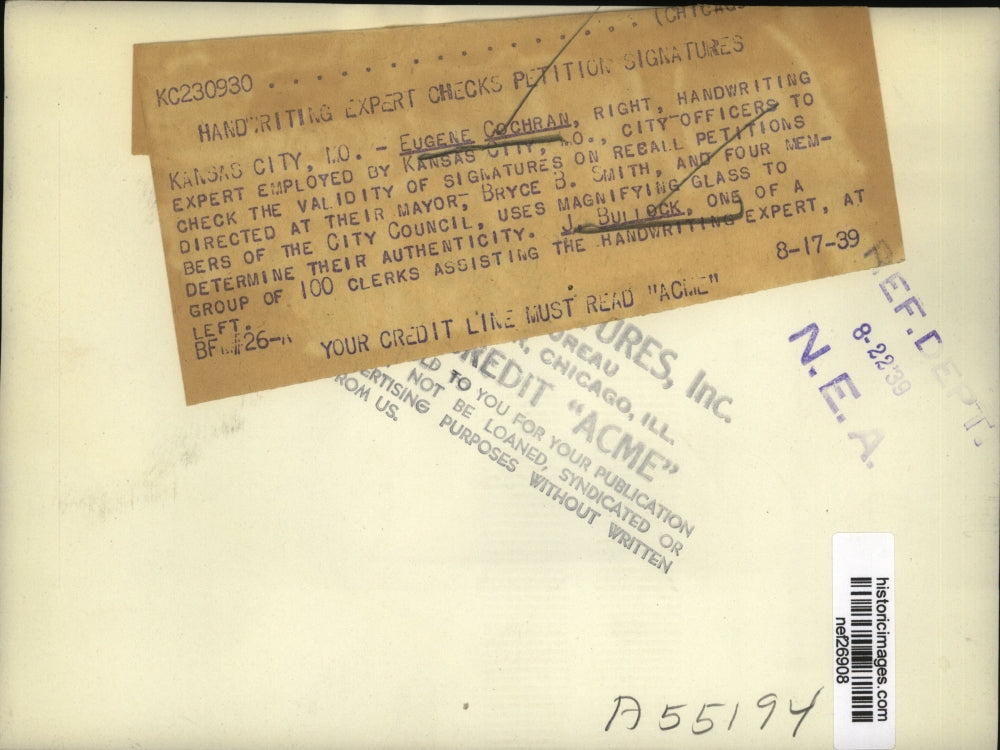 KC230930 . . . . . . . . . . . . . . . (CHICAGO
HANDWRITING EXPERT CHECKS PETITION SIGNATURES
KANSAS CITY, MO. - EUGENE COCHRAN, RIGHT, HANDWRITING
EXPERT EMPLOYED BY KANSAS CITY, MO., CITY OFFICERS TO
CHECK THE VALIDITY OF SIGNATURES ON RECALL PETITIONS
DIRECTED AT THEIR MAYOR, BRYCE B. SMITH, AND FOUR MEM-
BERS OF THE CITY COUNCIL, USES MAGNIFYING GLASS TO
DETERMINE THEIR AUTHENTICITY. J. BULLOCK, ONE OF A
GROUP OF 100 CLERKS ASSISTING THE HANDWRITING EXPERT, AT
LEFT.
8-17-39
YOUR CREDIT LINE MUST READ "ACME"
TURES, Inc.
BUREAU
CHICAGO, ILL.
CREDIT "ACME"
LD TO YOU FOR YOUR PUBLICATION
NOT BE LOANED, SYNDICATED OR
ERTISING PURPOSES WITHOUT WRITTEN
ROM US.
REF. DEPT.
8-22 39
N. E. A.
historicimages.com
nef26908
A55194